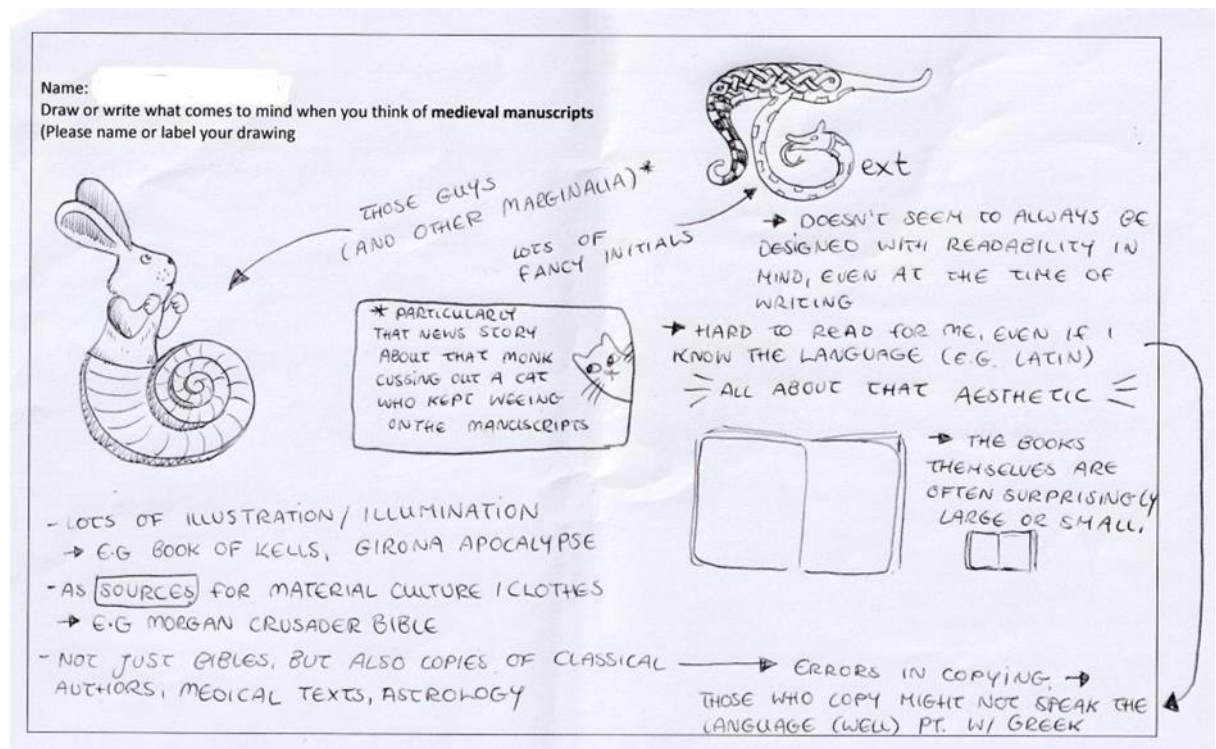 Name:
Draw or write what comes to mind when you think of medieval manuscripts
(Please name or label your drawing
THOSE GUYS
(AND OTHER MARGINALIA)*
LOTS OF
FANCY INITIALS
Text
→ DOESN'T SEEM TO ALLWAYS BE
DESIGNED WITH READABILITY IN
MIND, EVEN AT THE TIME OF
WRITING
* PARTICULARLY
THAT NEWS STORY
ABOUT THAT MONK
CUSSING OUT A CAT
WHO KEPT WEEING
ON THE MANUSCRIPTS
→ HARD TO READ FOR ME, EVEN IF I
KNOW THE LANGUAGE (E.G. LATIN)
ALL ABOUT THAT AESTHETIC
→ THE BOOKS
THEMSELVES ARE
OFTEN SURPRISINGLY
LARGE OR SMALL.
- LOTS OF ILLUSTRATION/ILLUMINATION
→ E.G BOOK OF KELLS, GIRONA APOCALYPSE
- AS SOURCES FOR MATERIAL CULTURE/CLOTHES
→ E.G MORGAN CRUSADER BIBLE
- NOT JUST BIBLES, BUT ALSO COPIES OF CLASSICAL
AUTHORS, MEDICAL TEXTS, ASTROLOGY
→ ERRORS IN COPYING →
THOSE WHO COPY MIGHT NOT SPEAK THE
LANGUAGE (WELL) PT. W/ GREEK